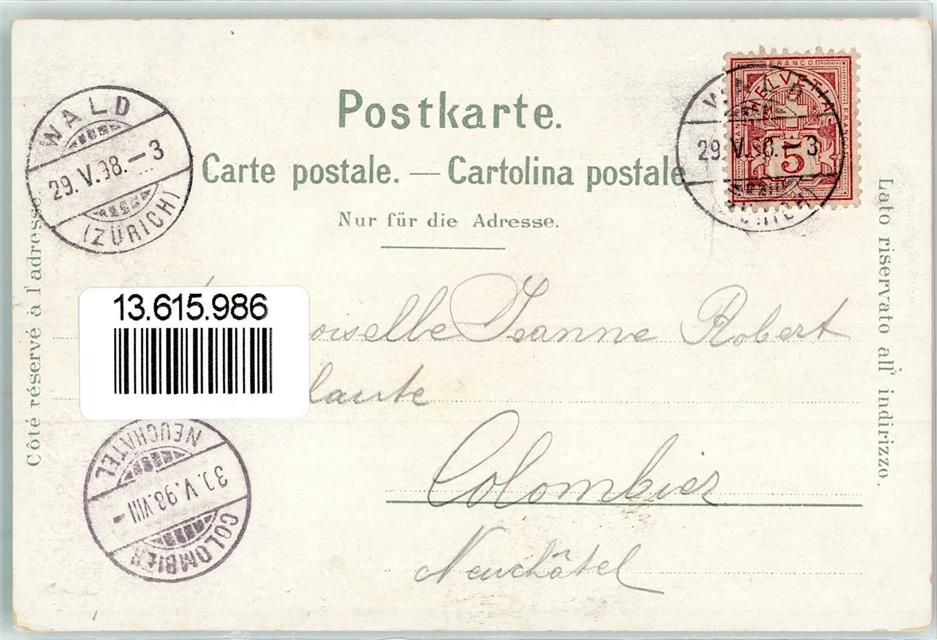 Postkarte.
Carte postale. — Cartolina postale
Nur für die Adresse.
WALD
29.V.98.–3
(ZÜRICH)
FRANCO
HELVETIA
5
29.V.98.–3
Côté réservé à l'adresse
Lato riservato all' indirizzo.
13.615.986
oiselle Jeanne Robert
Colombier
Neuchâtel
NEUCHATEL
30.V.98.VIII–
COLOMBIER